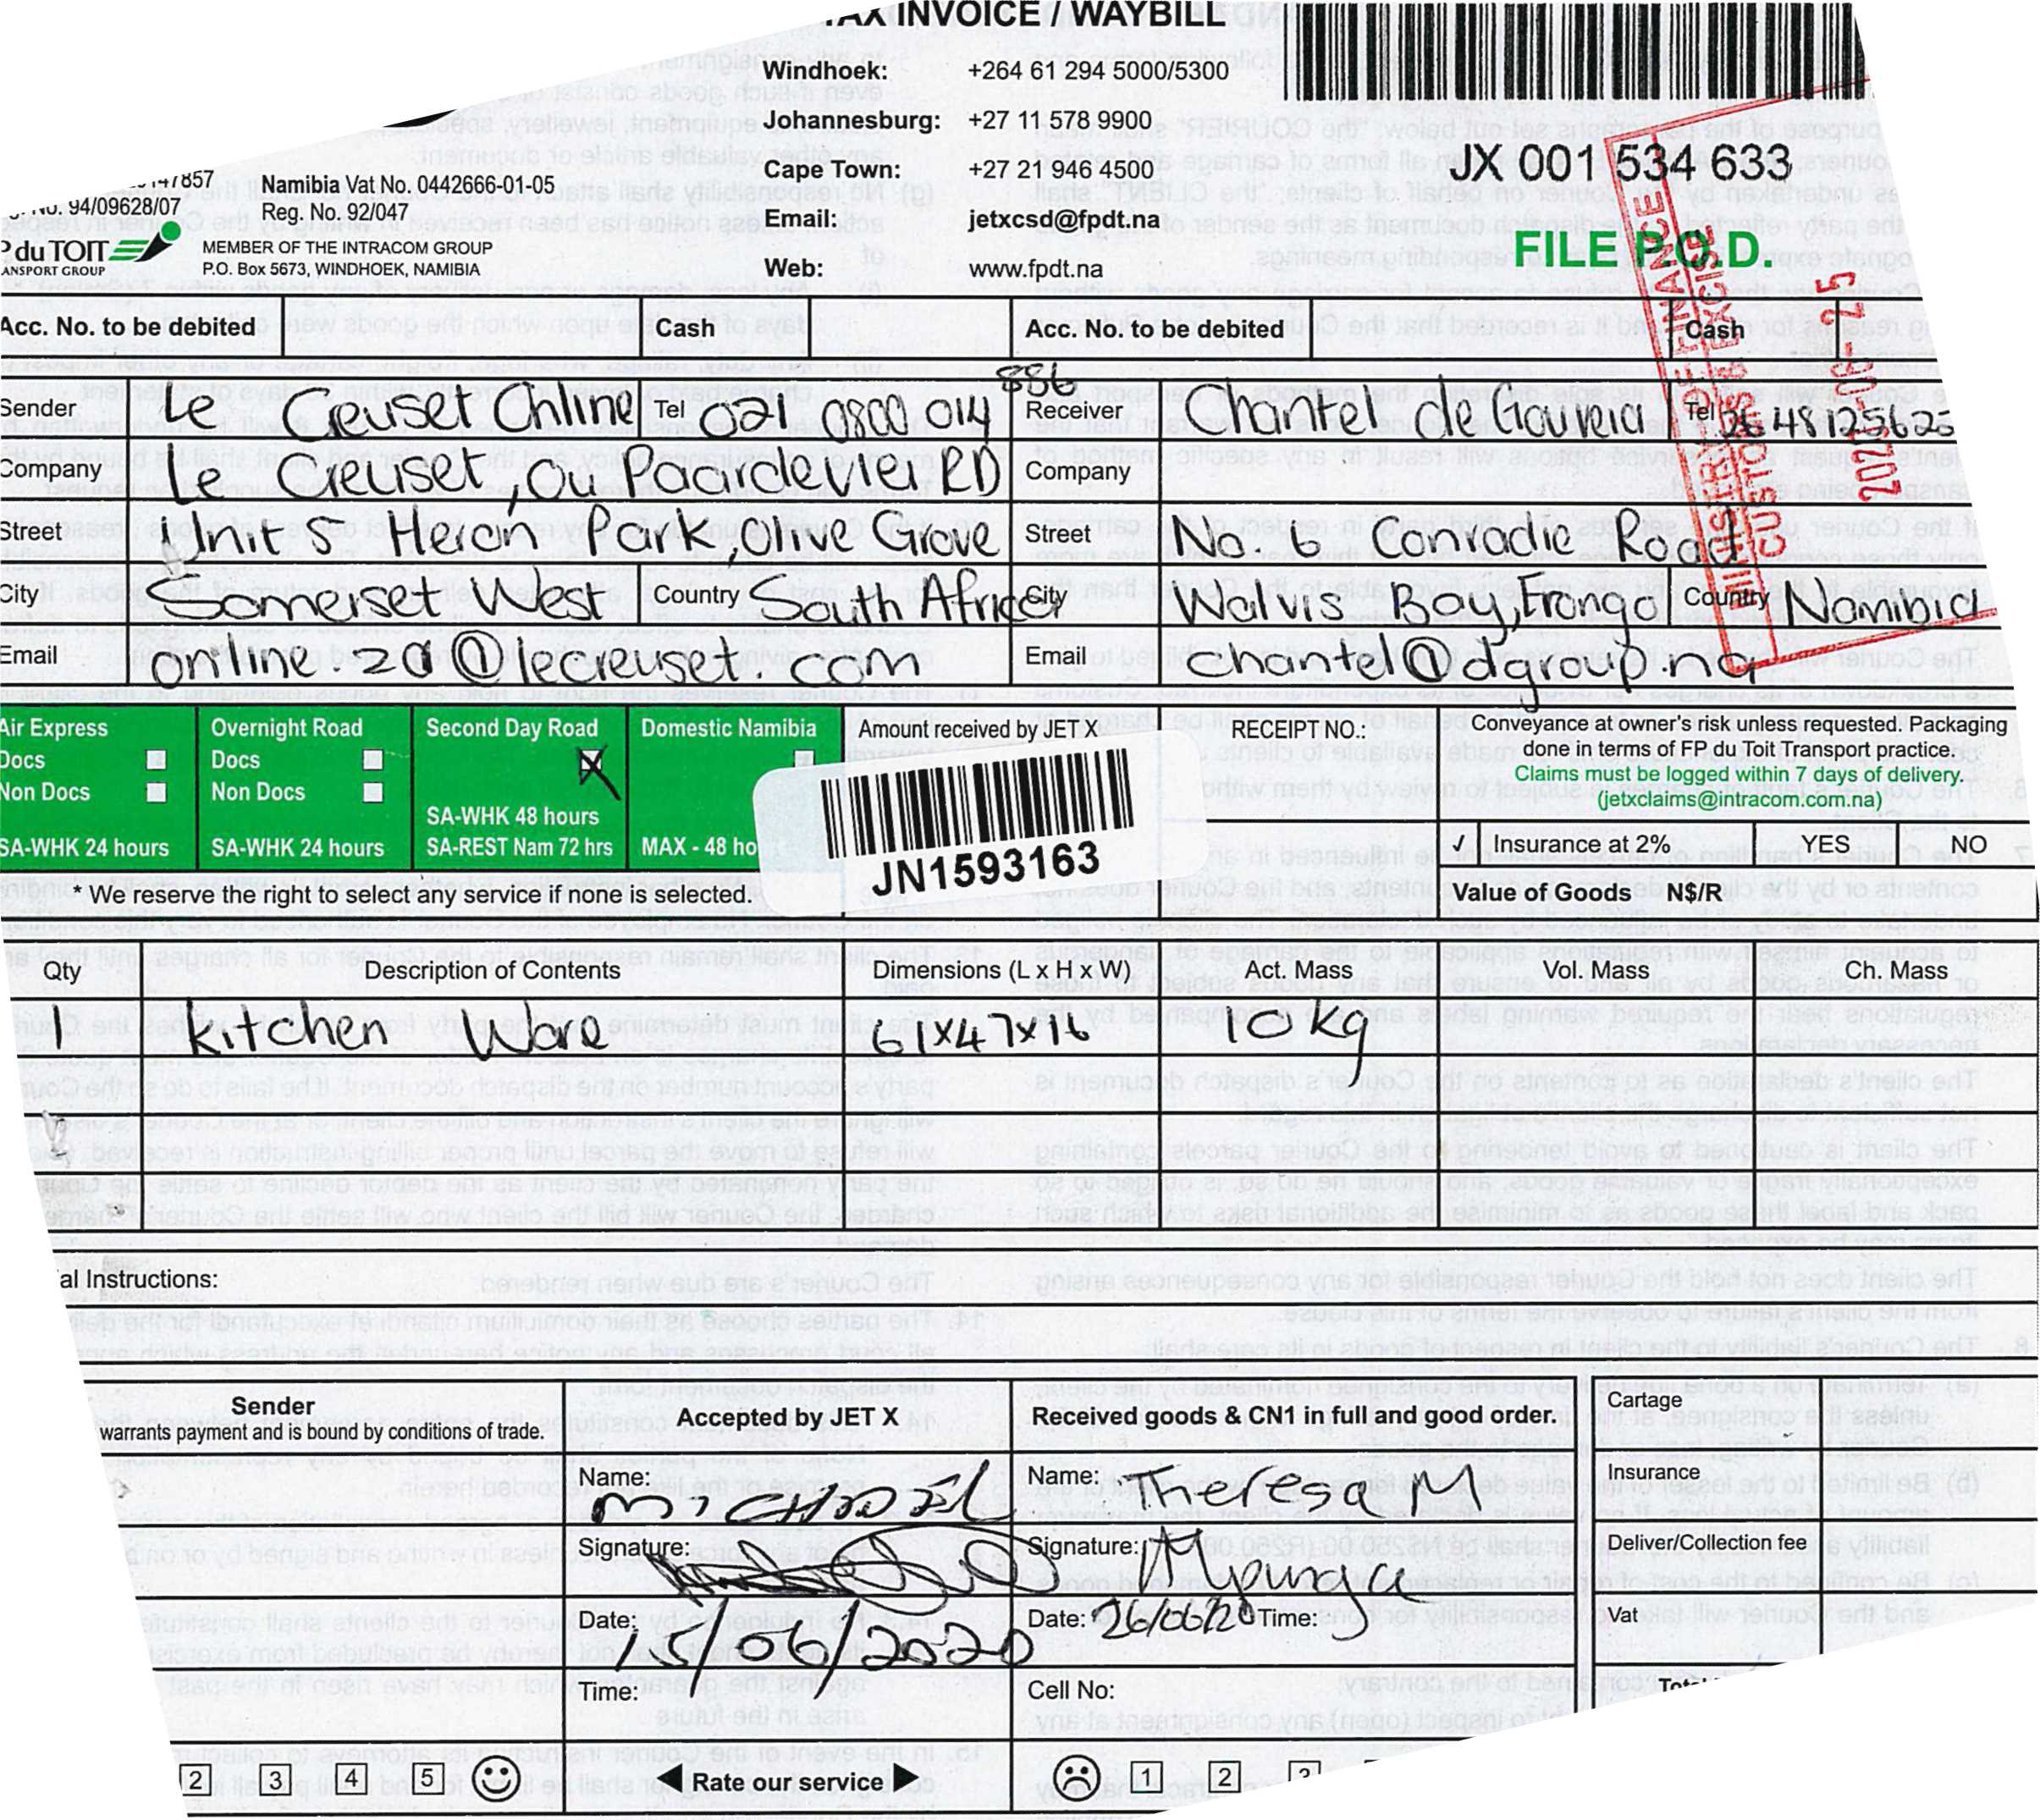 TAX INVOICE / WAYBILL
Windhoek: +264 61 294 5000/5300
Johannesburg: +27 11 578 9900
Cape Town: +27 21 946 4500
Email: jetxcsd@fpdt.na
Web: www.fpdt.na
JX 001 534 633
FILE P.O.D.
147857
94/09628/07
Namibia Vat No. 0442666-01-05
Reg. No. 92/047
du TOIT
ANSPORT GROUP
MEMBER OF THE INTRACOM GROUP
P.O. Box 5673, WINDHOEK, NAMIBIA
MINISTRY OF FINANCE
CUSTOMS & EXCISE
Acc. No. to be debited Cash Acc. No. to be debited Cash
Sender Le Creuset Online Tel 021 886 0800 014
Company Le Creuset, ou Paardevlei RD
Street Unit 5 Heron Park, Olive Grove
City Somerset West Country South Africa
Email online.za@lecreuset.com
Receiver Chantel de Gouveia Tel
Company
Street No. 6 Conradie Road
City Walvis Bay, Erongo Country Namibia
Email chantel@dgroup.na
Air Express Overnight Road Second Day Road Domestic Namibia
Docs Docs
Non Docs Non Docs
SA-WHK 48 hours
SA-WHK 24 hours SA-WHK 24 hours SA-REST Nam 72 hrs MAX - 48 ho
* We reserve the right to select any service if none is selected.
Amount received by JET X
JN1593163
RECEIPT NO.:
Conveyance at owner's risk unless requested. Packaging
done in terms of FP du Toit Transport practice.
Claims must be logged within 7 days of delivery.
(jetxclaims@intracom.com.na)
✓ Insurance at 2% YES NO
Value of Goods N$/R
Qty Description of Contents Dimensions (L x H x W) Act. Mass Vol. Mass Ch. Mass
1 Kitchen Ware 61x47x16 10kg
al Instructions:
Sender
warrants payment and is bound by conditions of trade.
Accepted by JET X
Name:
Signature:
Date: /06/2020
Time:
Received goods & CN1 in full and good order.
Name: Theresa M
Signature:
Date: 26/06/20 Time:
Cell No:
Cartage
Insurance
Deliver/Collection fee
Vat
2 3 4 5
Rate our service
1 2 3